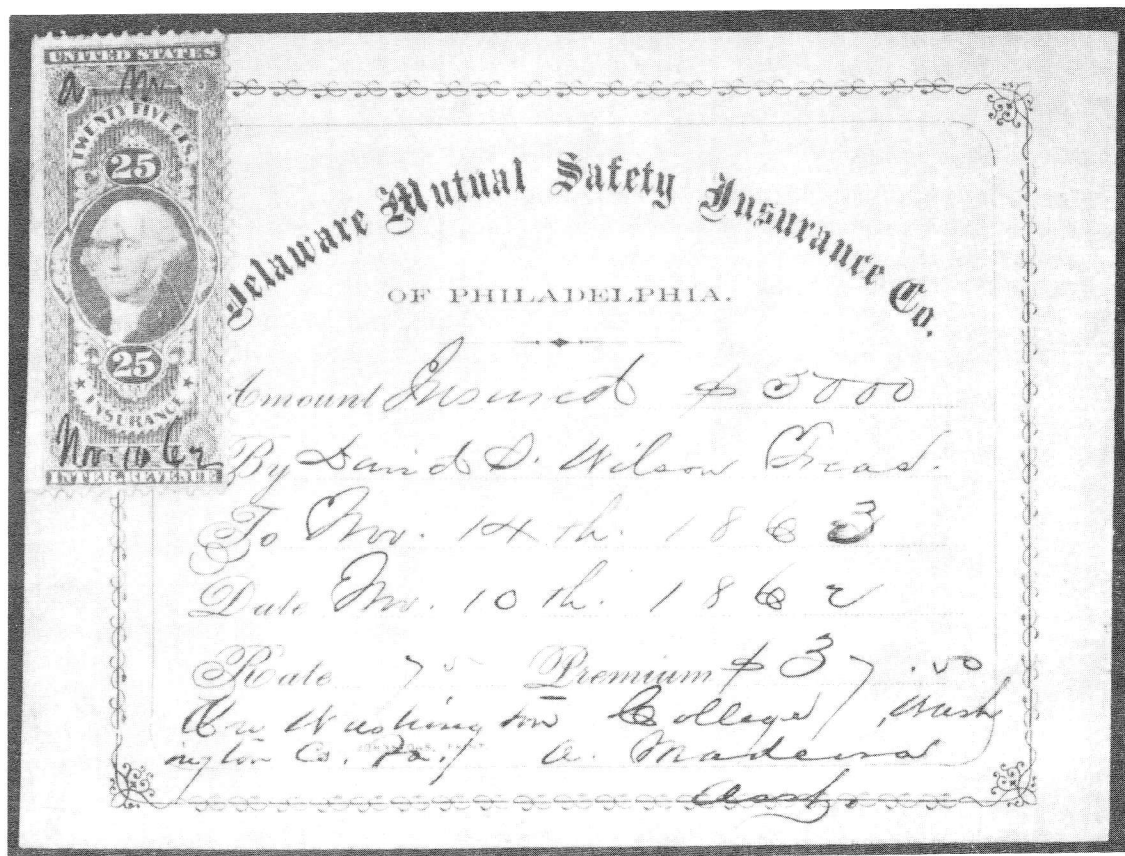 UNITED STATES
a M
TWENTY FIVE CTS.
25
25
INSURANCE
Nov. 10 62
INTER. REVENUE
Delaware Mutual Safety Insurance Co.
OF PHILADELPHIA.
Amount Insured $ 5000
By David S. Wilson Treas.
To Nov. 14th. 1863
Date Nov. 10th. 1862
Rate 75 Premium $ 37.50
On Washington College, Wash
ington Co. Pa. A. Madeira